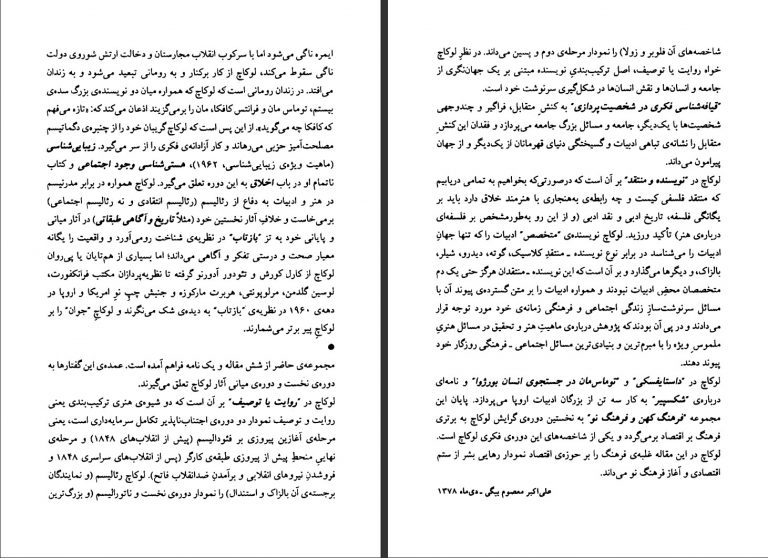 ایمره ناگی می‌شود اما با سرکوب انقلاب مجارستان و دخالت ارتش شوروی دولت
ناگی سقوط می‌کند، لوکاچ از کار برکنار و به رومانی تبعید می‌شود و به زندان
می‌افتد. در زندان رومانی است که لوکاچ که همواره میان دو نویسنده‌ی بزرگ سده‌ی
بیستم، توماس مان و فرانتس کافکا، مان را برمی‌گزیند اذعان می‌کند که: «تازه می‌فهم
که کافکا چه می‌گوید». از این پس است که لوکاچ گریبان خود را از چنبره‌ی دگماتیسم
مصلحت‌آمیز حزبی می‌رهاند و کار آزادانه‌ی فکری را از سر می‌گیرد. زیبایی‌شناسی
(ماهیت ویژه‌ی زیبایی‌شناسی، ۱۹۶۲)، هستی‌شناسی وجود اجتماعی و کتاب
ناتمام او در باب اخلاق به این دوره تعلق می‌گیرد. لوکاچ همواره در برابر مدرنیسم
در هنر و ادبیات به دفاع از رئالیسم (رئالیسم انتقادی و نه رئالیسم اجتماعی)
برمی‌خاست و خلافِ آثار نخستین خود (مثلاً تاریخ و آگاهی طبقاتی) در آثار میانی
و پایانی خود به تز "بازتاب" در نظریه‌ی شناخت رومی‌آورد و واقعیت را یگانه
معیار صحت و درستی تفکر و آگاهی می‌داند؛ اما بسیاری از هم‌تایان یا پی‌روان
لوکاچ از کارل کورش و تئودور آدورنو گرفته تا نظریه‌پردازان مکتب فرانکفورت،
لوسین گلدمن، مرلوپونتی، هربرت مارکوزه و جنبش چپِ نو امریکا و اروپا در
دهه‌ی ۱۹۶۰ در نظریه‌ی "بازتاب" به دیده‌ی شک می‌نگرند و لوکاچِ "جوان" را بر
لوکاچِ پیر برتر می‌شمارند.
●
مجموعه‌ی حاضر از شش مقاله و یک نامه فراهم آمده است. عمده‌ی این گفتارها به
دوره‌ی نخست و دوره‌ی میانی آثار لوکاچ تعلق می‌گیرند.
لوکاچ در "روایت یا توصیف" بر آن است که دو شیوه‌ی هنری ترکیب‌بندی یعنی
روایت و توصیف نمودار دو دوره‌ی اجتناب‌ناپذیر تکامل سرمایه‌داری است، یعنی
مرحله‌ی آغازین پیروزی بر فئودالیسم (پیش از انقلاب‌های ۱۸۴۸) و مرحله‌ی
نهاییِ منحطِ پیش از پیروزی طبقه‌ی کارگر (پس از انقلاب‌های سراسری ۱۸۴۸ و
فروشدنِ نیروهای انقلابی و برآمدنِ ضدانقلاب فاتح). لوکاچ رئالیسم (و نمایندگان
برجسته‌ی آن بالزاک و استندال) را نمودار دوره‌ی نخست و ناتورالیسم (و بزرگ‌ترین
شاخصه‌های آن فلوبر و زولا) را نمودار مرحله‌ی دوم و پسین می‌داند. در نظر لوکاچ
خواه روایت یا توصیف، اصل ترکیب‌بندیِ نویسنده مبتنی بر یک جهان‌نگری از
جامعه و انسان‌ها و نقش انسان‌ها در شکل‌گیری سرنوشت خود است.
"قیافه‌شناسی فکری در شخصیت‌پردازی" به کنشِ متقابل، فراگیر و چندوجهی
شخصیت‌ها با یک‌دیگر، جامعه و مسائل بزرگ جامعه می‌پردازد و فقدان این کنشِ
متقابل را نشانه‌ی تباهی ادبیات و گسیختگی دنیای قهرمانان از یک‌دیگر و از جهان
پیرامون می‌داند.
لوکاچ در "نویسنده و منتقد" بر آن است که درصورتی‌که بخواهیم به تمامی دریابیم
که منتقد فلسفی کیست و چه رابطه‌ی به‌هنجاری با هنرمند خلاق دارد باید بر
یگانگی فلسفه، تاریخ ادبی و نقد ادبی (و از این رو به‌طورمشخص بر فلسفه‌ای
درباره‌ی هنر) تأکید ورزید. لوکاچ نویسنده‌ی "متخصص" ادبیات را که تنها جهانِ
ادبیات را می‌شناسد در برابر نوع نویسنده ـ منتقدِ کلاسیک، گوته، دیدرو، شیلر،
بالزاک، و دیگرها می‌گذارد و بر آن است که این نویسنده ـ منتقدان هرگز حتی یک دم
متخصصان محضِ ادبیات نبودند و همواره ادبیات را بر متن گسترده‌ی پیوند آن با
مسائل سرنوشت‌سازِ زندگی اجتماعی و فرهنگی زمانه‌ی خود مورد توجه قرار
می‌دادند و در پی آن بودند که پژوهش درباره‌ی ماهیتِ هنر و تحقیق در مسائل هنریِ
ملموسِ ویژه را با مبرم‌ترین و بنیادی‌ترین مسائل اجتماعی ـ فرهنگی روزگار خود
پیوند دهند.
لوکاچ در "داستایفسکی" و "توماس‌مان در جستجوی انسان بورژوا" و نامه‌ای
درباره‌ی "شکسپیر" به کار سه تن از بزرگان ادبیات اروپا می‌پردازد. پایان این
مجموعه "فرهنگ کهن و فرهنگ نو" به نخستین دوره‌ی گرایش لوکاچ به برتری
فرهنگ بر اقتصاد برمی‌گردد و یکی از شاخصه‌های این دوره‌ی فکری لوکاچ است.
لوکاچ در این مقاله غلبه‌ی فرهنگ را بر حوزه‌ی اقتصاد نمودار رهایی بشر از ستم
اقتصادی و آغاز فرهنگ نو می‌داند.
علی‌اکبر معصوم بیگی ـ دی‌ماه ۱۳۷۸